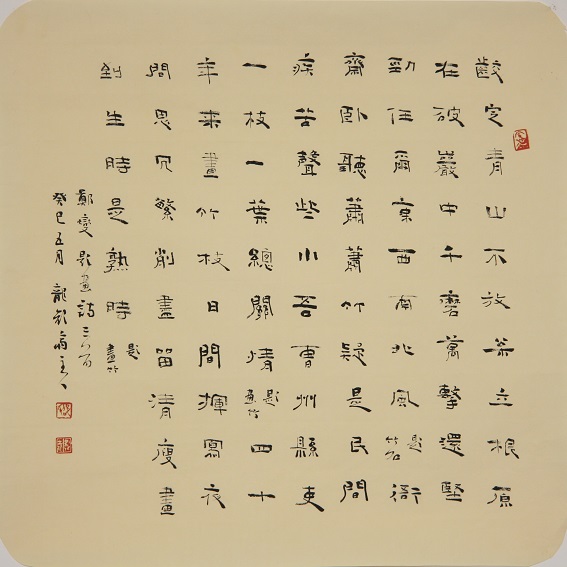 齩定青山不放立根原
在破巖中千磨萬擊還堅
勁任爾東西南北風題竹石衙
齋臥聽蕭蕭竹疑是民間
疾苦聲些小吾曹州縣吏
一枝一葉總關情題畫竹四十
年來畫竹枝日間揮寫夜
間思冗繁削盡留清瘦畫
到生時是熟時題畫竹
鄭燮題畫詩三首
癸巳五月龍